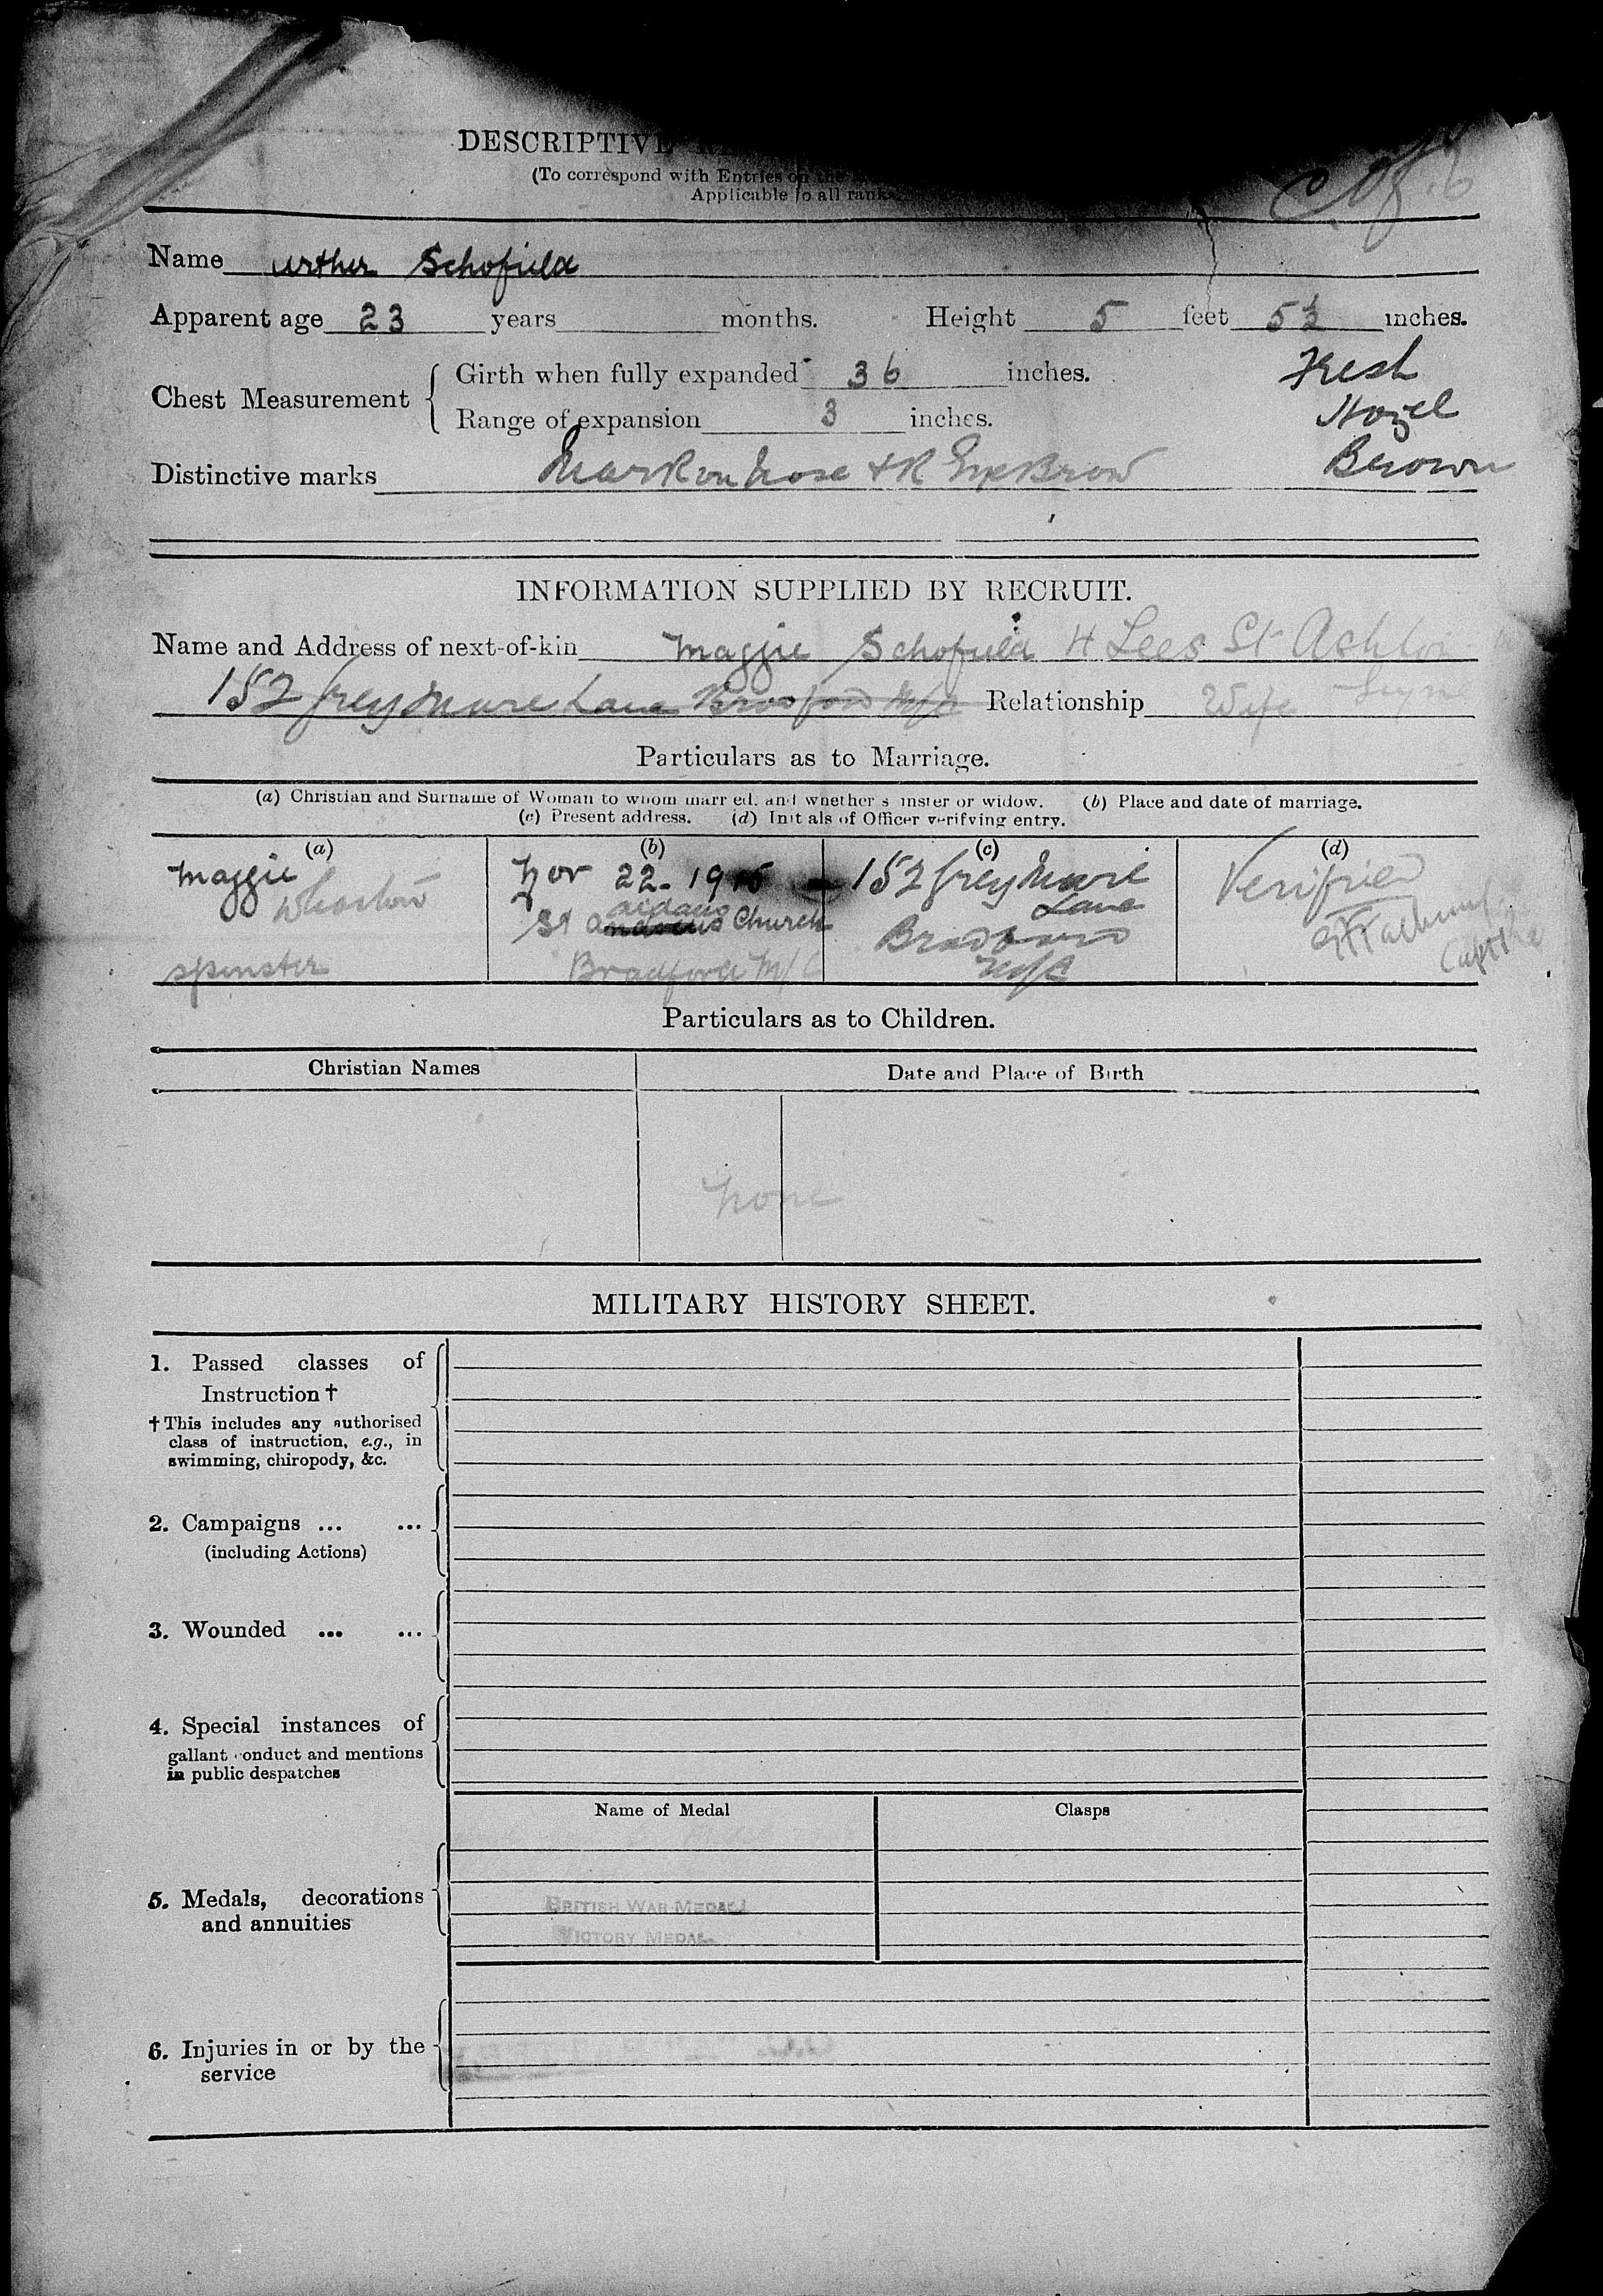 DESCRIPTIVE
(To correspond with Entries on the
Applicable to all ranks
Name Arthur Schofield
Apparent age 23 years months. Height 5 feet 5½ inches.
Chest Measurement { Girth when fully expanded 36 inches. Fresh
Range of expansion 3 inches. Hazel
Distinctive marks Mark on Nose & R Eye Brow Brown
INFORMATION SUPPLIED BY RECRUIT.
Name and Address of next-of-kin Maggie Schofield 4 Lees St Ashton
152 Grey Mare Lane Bradford M/C Relationship Wife Lyne
Particulars as to Marriage.
(a) Christian and Surname of Woman to whom married, and whether spinster or widow. (b) Place and date of marriage.
(c) Present address. (d) Initials of Officer verifying entry.
(a) (b) (c) (d)
Maggie Nov 22. 1915 152 Grey Mare Verified
Aidans Lane
St Andrews Church Bradford Capt
spinster Bradford M/C M/C
Particulars as to Children.
Christian Names Date and Place of Birth
None
MILITARY HISTORY SHEET.
1. Passed classes of
Instruction †
† This includes any authorised
class of instruction, e.g., in
swimming, chiropody, &c.
2. Campaigns ... ...
(including Actions)
3. Wounded ... ...
4. Special instances of
gallant conduct and mentions
in public despatches
Name of Medal Clasps
5. Medals, decorations
and annuities
BRITISH WAR MEDAL
VICTORY MEDAL
6. Injuries in or by the
service